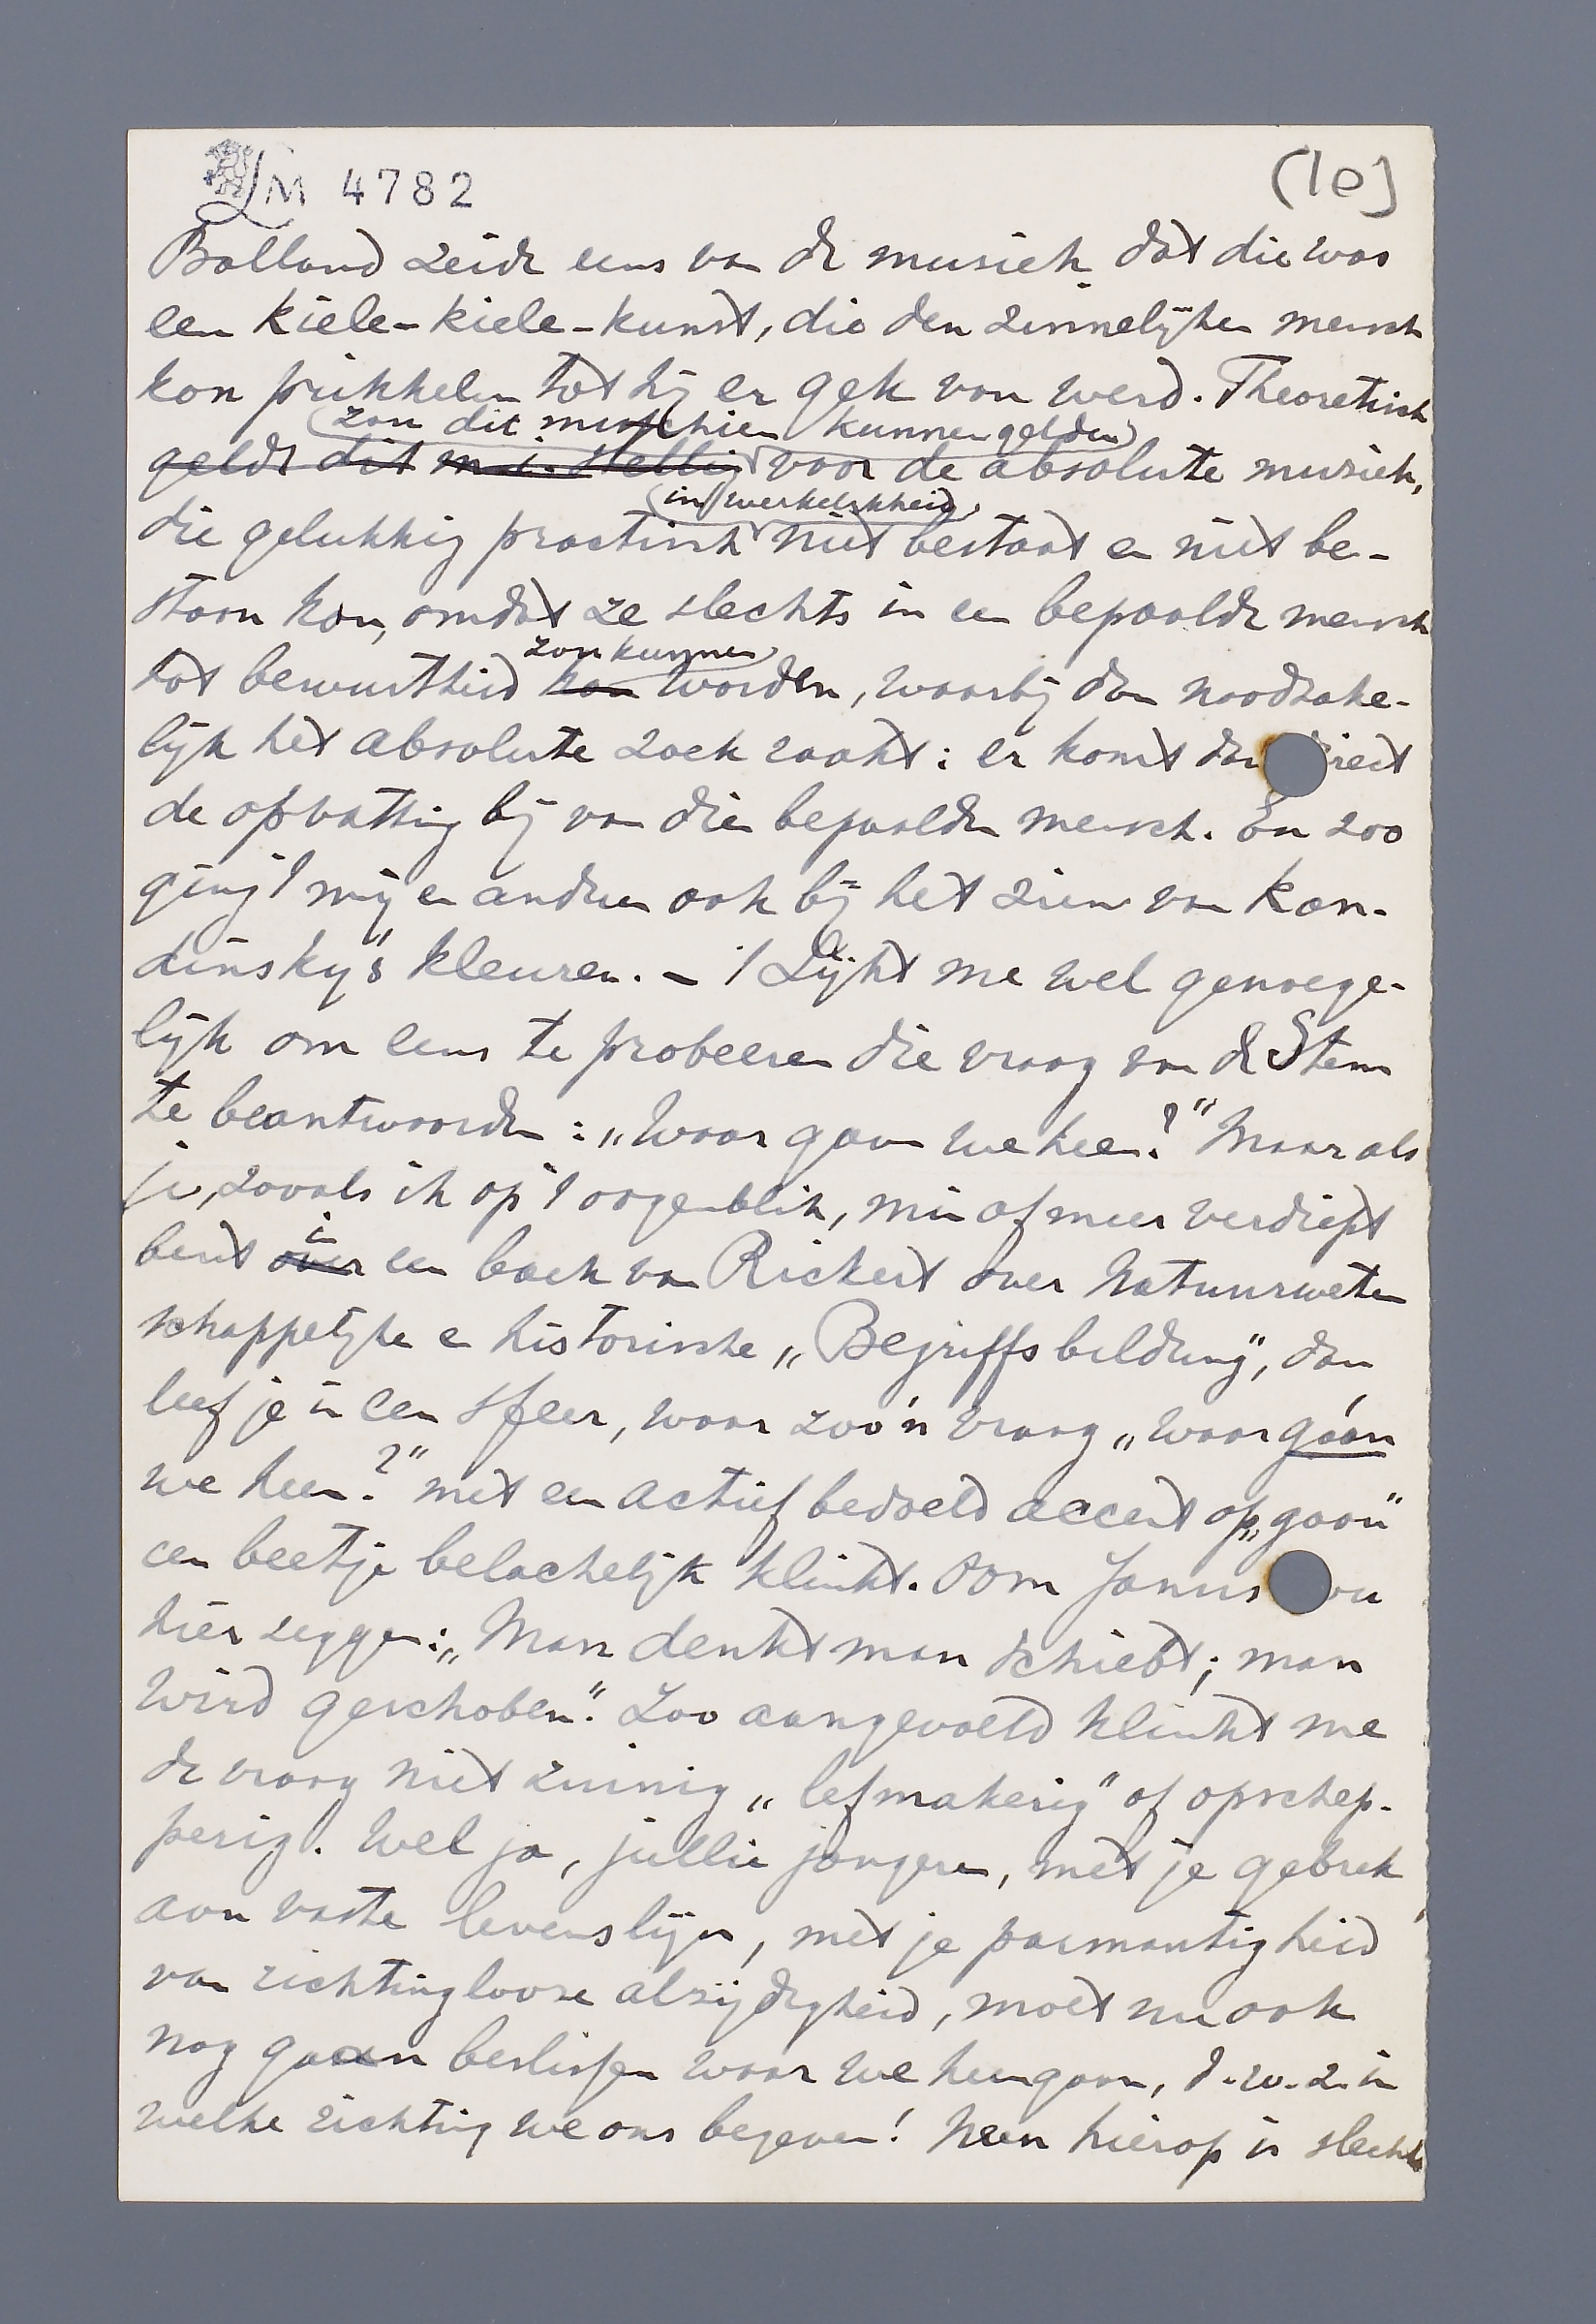 LM 4782
(10]
Bolland zeide eens van de musiek dat die was
een kiele-kiele-kunst, die den zinnelijken mensch
kon prikkelen tot hij er gek van werd. Theoretisch
zou dit misschien kunnen gelden
geldt dit m.i. stellig voor de absolute musiek,
in werkelijkheid
die gelukkig practisch niet bestaat en niet be-
staan kan, omdat ze slechts in een bepaalde mensch
zou kunnen
tot bewustheid kan worden, waarbij dan noodzake-
lijk het absolute zoek raakt: er komt dan direct
de opvatting bij van die bepaalden mensch. En zoo
ging 't mij en andren ook bij het zien van Kan-
dinsky's kleuren. - 't Lijkt me wel genoege-
lijk om eens te probeeren die vraag van de Stem
te beantwoorden: „Waar gaan we heen?" Maar als
je, zooals ik op 't oogenblik, min of meer verdiept
in
bent over een boek van Rickert over Natuurweten
schappelijke en historische „Begriffsbildung", dan
leef je in een sfeer, waar zoo'n vraag „waar gáan
we heen?" met een actief bedoeld accent op „gaan"
een beetje belachelijk klinkt. Oom Janus zou
hier zeggen: „Man denkt man schiebt; man
wird geschoben". Zoo aangevoeld klinkt me
de vraag niet zuinig „lefmakerig" of opschep-
perig. Wel ja, jullie jongeren, met je gebrek
aan vaste levenslijn, met je parmantigheid
van richtinglooze alzijdigheid, moet nu ook
nog gaan beslissen waar we heengaan, d.w.z. in
welke richting we ons begeven! Neen hierop is slechts